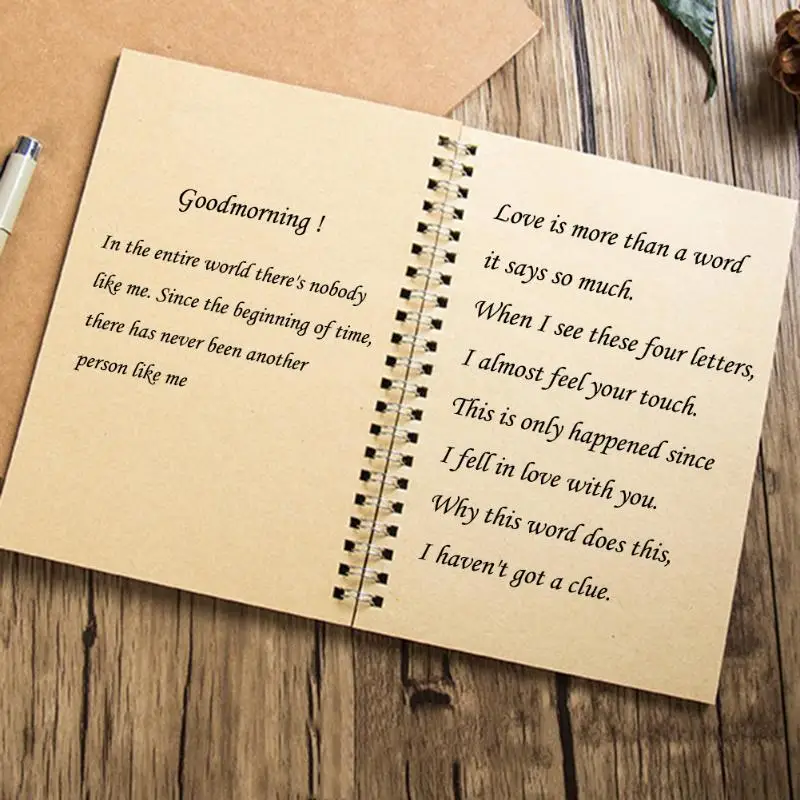 Goodmorning !
In the entire world there's nobody
like me. Since the beginning of time,
there has never been another
person like me
Love is more than a word
it says so much.
When I see these four letters,
I almost feel your touch.
This is only happened since
I fell in love with you.
Why this word does this,
I haven't got a clue.